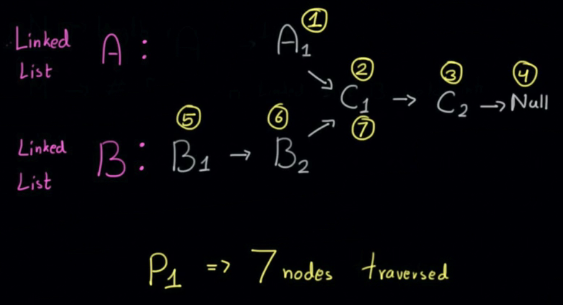 Linked List A :
1
A1
2
C1
7
→
3
C2
→
4
Null
Linked List B :
5
B1
→
6
B2
P1 => 7 nodes traversed